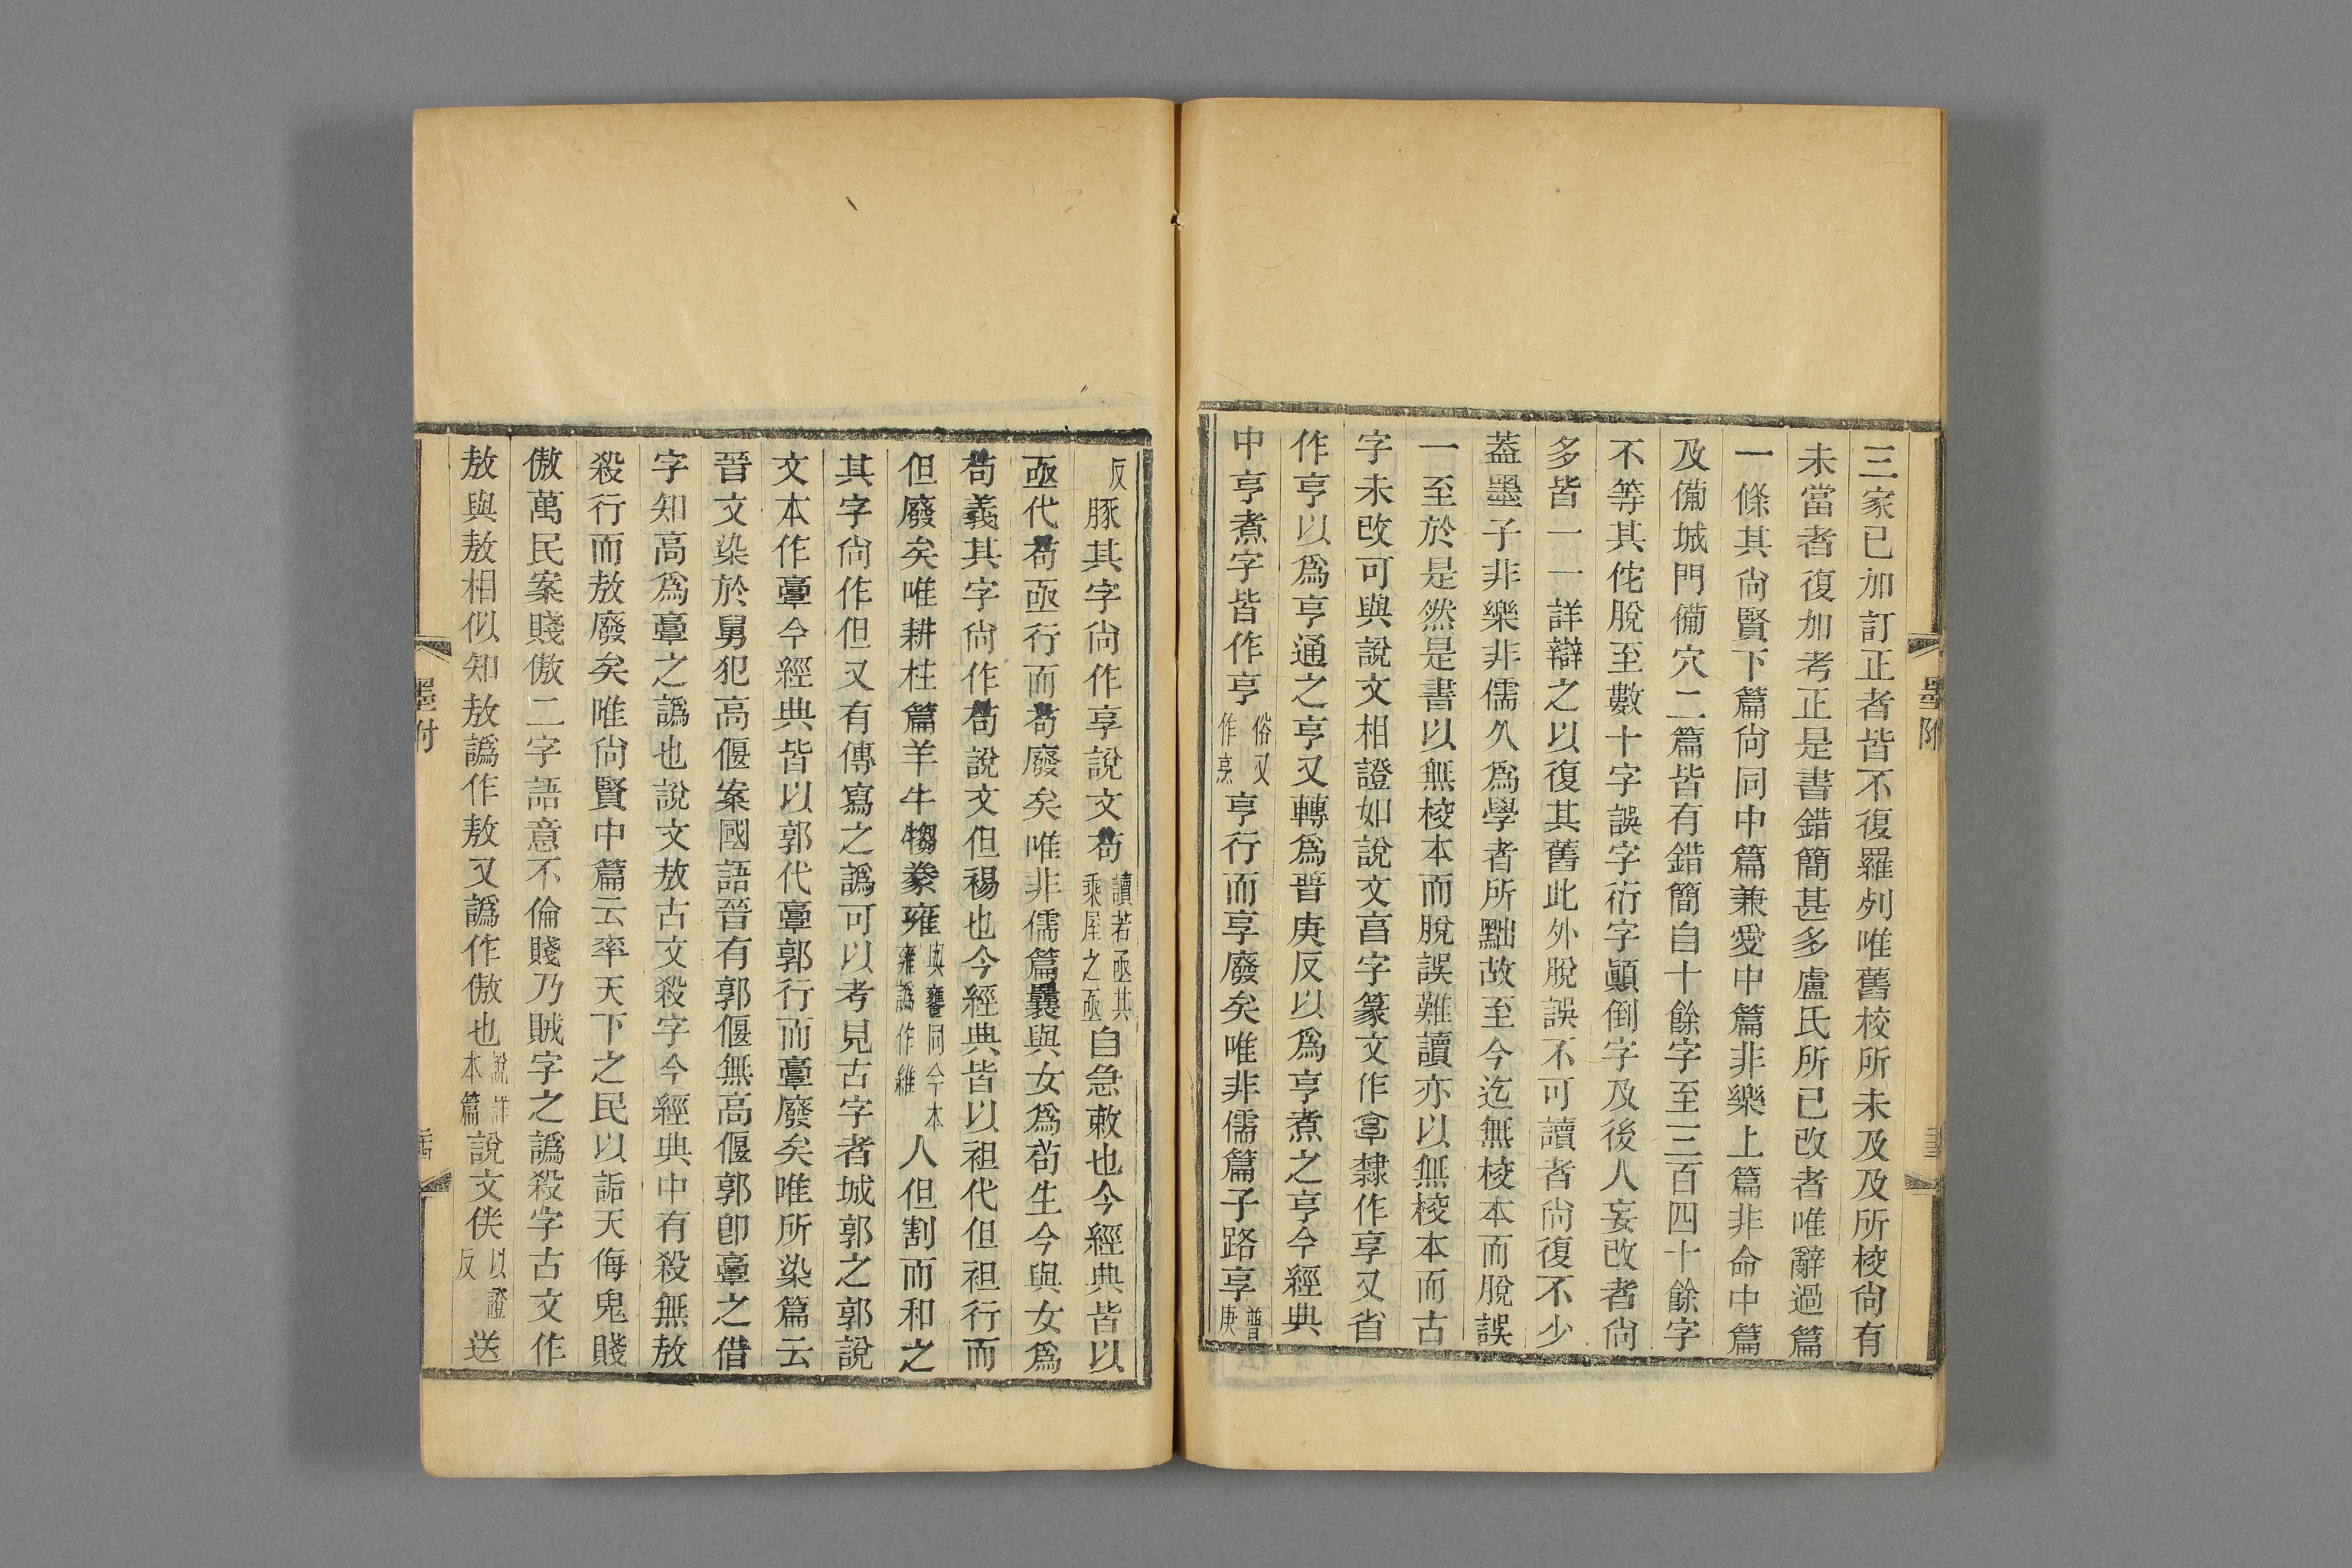 三家已加訂正者皆不復羅列唯舊校所未及及所棱尙有
未當者復加考正是書錯簡甚多盧氏所已改者唯辭過篇
一條其尙賢下篇尙同中篇兼愛中篇非樂上篇非命中篇
及備城門備穴二篇皆有錯簡自十餘字至三百四十餘字
不等其佗脫至數十字誤字衍字顚倒字及後人妄改者尙
多皆一一詳辯之以復其舊此外脫誤不可讀者尙復不少
葢墨子非樂非儒久爲學者所黜故至今迄無棱本而脫誤
一至於是然是書以無棱本而脫誤難讀亦以無棱本而古
字未改可與說文相證如說文𠅠字篆文作𦎫隸作享又省
作亨以爲亨通之亨又轉爲普庚反以爲亨煮之亨今經典
中亨煮字皆作亨俗又作烹亨行而享廢矣唯非儒篇子路享普庚
反豚其字尙作享說文茍讀若亟其乘屋之亟自急敕也今經典皆以
亟代茍亟行而茍廢矣唯非儒篇曩與女爲茍生今與女爲
茍義其字尙作茍說文但裼也今經典皆以袒代但袒行而
但廢矣唯耕柱篇羊牛犓豢雍與饔同今本雍譌作維人但割而和之
其字尙作但又有傳寫之譌可以考見古字者城郭之郭說
文本作𩫖今經典皆以郭代𩫖郭行而𩫖廢矣唯所染篇云
晉文染於舅犯高偃案國語晉有郭偃無高偃郭卽𩫖之借
字知高爲𩫖之譌也說文敖古文殺字今經典中有殺無敖
殺行而敖廢矣唯尙賢中篇云率天下之民以詬天侮鬼賤
傲萬民案賤傲二字語意不倫賤乃賊字之譌殺字古文作
敖與敖相似知敖譌作敖又譌作傲也說詳本篇說文佚以證反送
墨附
墨附